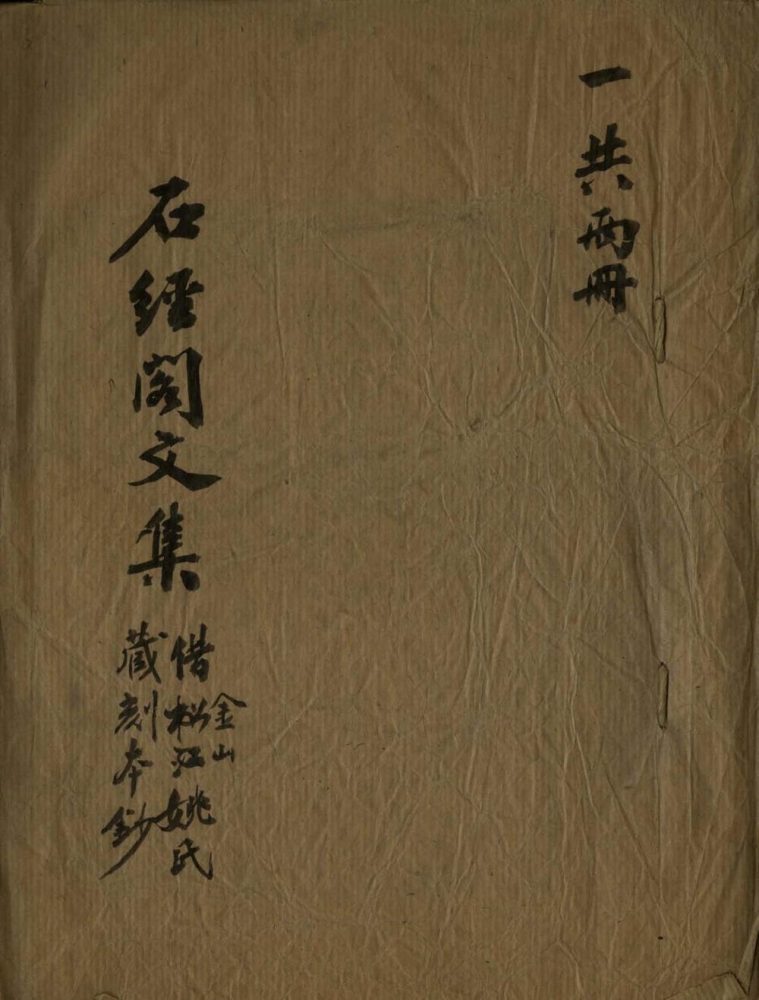 一共兩冊
石經閣文集
借松江姚氏
金山
藏刻本鈔